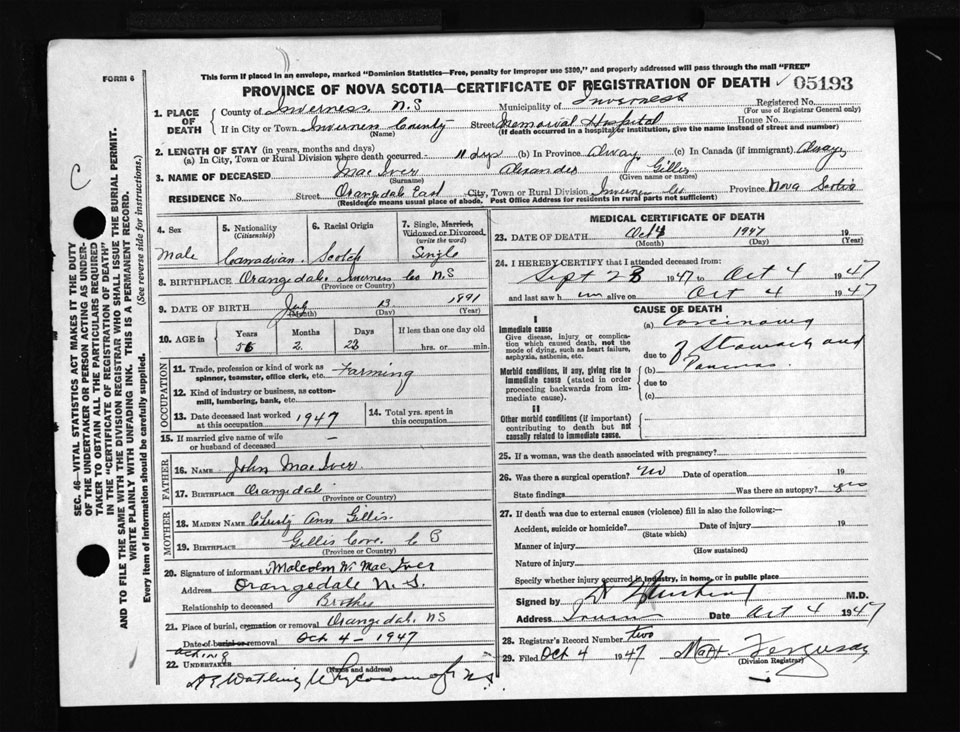 FORM 6
This form if placed in an envelope, marked "Dominion Statistics—Free, penalty for improper use $300," and properly addressed will pass through the mail "FREE"
PROVINCE OF NOVA SCOTIA—CERTIFICATE OF REGISTRATION OF DEATH ✓ 05193
1. PLACE OF DEATH
County of Inverness N.S Municipality of Inverness Registered No.
(For use of Registrar General only)
If in City or Town Inverness County Street Memorial Hospital House No.
(Name) (If death occurred in a hospital or institution, give the name instead of street and number)
2. LENGTH OF STAY (in years, months and days)
(a) In City, Town or Rural Division where death occurred - 11 dys (b) In Province Always (c) In Canada (if immigrant) Always
3. NAME OF DECEASED MacIver Alexander Gillis
(Surname) (Given name or names)
RESIDENCE No. Street Orangedale East City, Town or Rural Division Inverness Co Province Nova Scotia
(Residence means usual place of abode. Post Office Address for residents in rural parts not sufficient)
4. Sex Male
5. Nationality (Citizenship) Canadian
6. Racial Origin Scotch
7. Single, Married, Widowed or Divorced (write the word) Single
8. BIRTHPLACE Orangedale Inverness Co N.S
(Province or Country)
9. DATE OF BIRTH July 13 1891
(Month) (Day) (Year)
10. AGE in Years Months Days If less than one day old
56 2 22 hrs. or min.
OCCUPATION
11. Trade, profession or kind of work as spinner, teamster, office clerk, etc. Farming
12. Kind of industry or business, as cotton-mill, lumbering, bank, etc.
13. Date deceased last worked at this occupation 1947
14. Total yrs. spent in this occupation
15. If married give name of wife or husband of deceased —
FATHER
16. NAME John MacIver
17. BIRTHPLACE Orangedale
(Province or Country)
MOTHER
18. MAIDEN NAME Christy Ann Gillis
19. BIRTHPLACE Gillis Cove C B
(Province or Country)
20. Signature of informant Malcolm W. MacIver
Address Orangedale N.S.
Relationship to deceased Brother
21. Place of burial, cremation or removal Orangedale NS
Date of burial or removal Oct 4 - 1947
acting
22. UNDERTAKER
(Name and address)
Watling Whycocomagh N.S
MEDICAL CERTIFICATE OF DEATH
23. DATE OF DEATH Oct 4 1947 19
(Month) (Day) (Year)
24. I HEREBY CERTIFY that I attended deceased from:
Sept 23 1947 to Oct 4 1947
and last saw h im alive on Oct 4 1947
CAUSE OF DEATH
I
Immediate cause
Give disease, injury or complication which caused death, not the mode of dying, such as heart failure, asphyxia, asthenia, etc.
(a) Carcinoma
due to of Stomach and
Morbid conditions, if any, giving rise to immediate cause (stated in order proceeding backwards from immediate cause).
(b) Pancreas.
due to
(c)
II
Other morbid conditions (if important) contributing to death but not causally related to immediate cause.
25. If a woman, was the death associated with pregnancy?
26. Was there a surgical operation? No Date of operation 19
State findings Was there an autopsy? yes
27. If death was due to external causes (violence) fill in also the following:—
Accident, suicide or homicide? Date of injury 19
(State which)
Manner of injury
(How sustained)
Nature of injury
Specify whether injury occurred in industry, in home, or in public place
Signed by M.D.
Address Date Oct 4 1947
28. Registrar's Record Number two
29. Filed Oct 4 1947 Ferguson
(Division Registrar)
C
SEC. 46—VITAL STATISTICS ACT MAKES IT THE DUTY OF THE UNDERTAKER OR PERSON ACTING AS UNDERTAKER TO OBTAIN ALL THE PARTICULARS REQUIRED IN THE "CERTIFICATE OF REGISTRATION OF DEATH" AND TO FILE THE SAME WITH THE DIVISION REGISTRAR WHO SHALL ISSUE THE BURIAL PERMIT.
WRITE PLAINLY WITH UNFADING INK. THIS IS A PERMANENT RECORD.
Every item of Information should be carefully supplied. (See reverse side for instructions.)